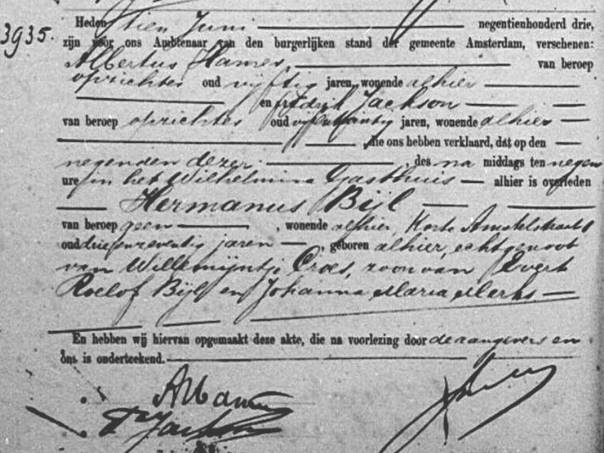 3935.
Heden tien Juni negentienhonderd drie,
zijn voor ons Ambtenaar van den burgerlijken stand der gemeente Amsterdam, verschenen:
Albertus Hamer van beroep
oprichter oud vijftig jaren, wonende alhier
en Jackson
van beroep oprichter oud jaren, wonende alhier
die ons hebben verklaard, dat op den
negenden dezer des na middags ten negen
ure in het Wilhelmina Gasthuis alhier is overleden
Hermanus Bijl
van beroep geen , wonende alhier, Korte Amstelstraat
oud drie en zeventig jaren , geboren alhier, echtgenoot
van Willemijntje Croes, zoon van Evert
Roelof Bijl en Johanna Maria Merks
En hebben wij hiervan opgemaakt deze akte, die na voorlezing door de aangevers en
ons is onderteekend.
A Hamer
Jackson